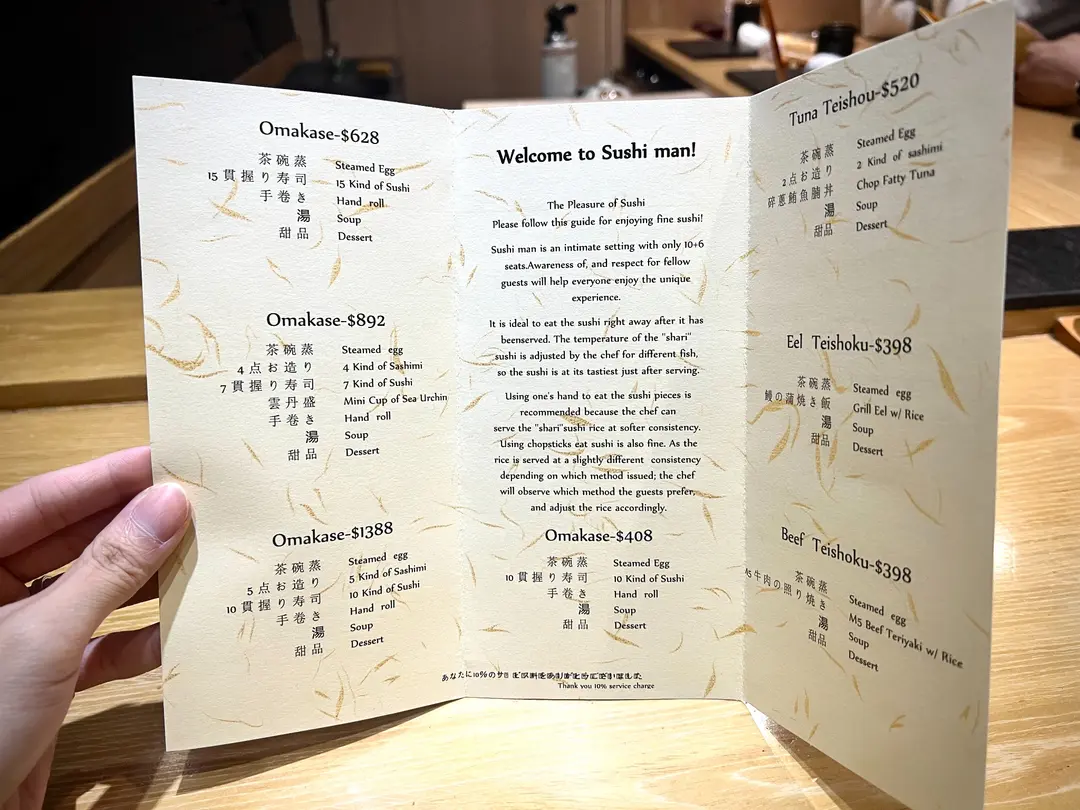 Omakase-$628
茶碗蒸 Steamed Egg
15貫握り寿司 15 Kind of Sushi
手巻き Hand roll
湯 Soup
甜品 Dessert
Omakase-$892
茶碗蒸 Steamed egg
4点お造り 4 Kind of Sashimi
7貫握り寿司 7 Kind of Sushi
雲丹盛 Mini Cup of Sea Urchin
手巻き Hand roll
湯 Soup
甜品 Dessert
Omakase-$1388
茶碗蒸 Steamed egg
5点お造り 5 Kind of Sashimi
10貫握り寿司 10 Kind of Sushi
手巻き Hand roll
湯 Soup
甜品 Dessert
Welcome to Sushi man!
The Pleasure of Sushi
Please follow this guide for enjoying fine sushi!
Sushi man is an intimate setting with only 10+6
seats.Awareness of, and respect for fellow
guests will help everyone enjoy the unique
experience.
It is ideal to eat the sushi right away after it has
beenserved. The temperature of the "shari"
sushi is adjusted by the chef for different fish,
so the sushi is at its tastiest just after serving.
Using one's hand to eat the sushi pieces is
recommended because the chef can
serve the "shari"sushi rice at softer consistency.
Using chopsticks eat sushi is also fine. As the
rice is served at a slightly different consistency
depending on which method issued; the chef
will observe which method the guests prefer,
and adjust the rice accordingly.
Omakase-$408
茶碗蒸 Steamed Egg
10貫握り寿司 10 Kind of Sushi
手巻き Hand roll
湯 Soup
甜品 Dessert
あなたに10%のサ
Thank you 10% service charge
Tuna Teishou-$520
茶碗蒸 Steamed Egg
2点お造り 2 Kind of sashimi
碎蔥鮪魚腩丼 Chop Fatty Tuna
湯 Soup
甜品 Dessert
Eel Teishoku-$398
茶碗蒸 Steamed egg
鰻の蒲焼き飯 Grill Eel w/ Rice
湯 Soup
甜品 Dessert
Beef Teishoku-$398
茶碗蒸 Steamed egg
牛肉の照り焼き M5 Beef Teriyaki w/ Rice
湯 Soup
甜品 Dessert